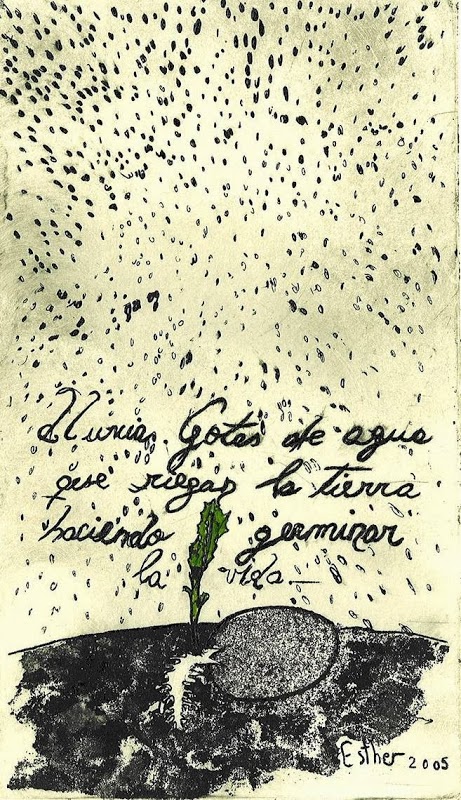 Lluvia. Gotas de agua
que riegan la tierra
haciendo germinar
la vida_
Esther 2005